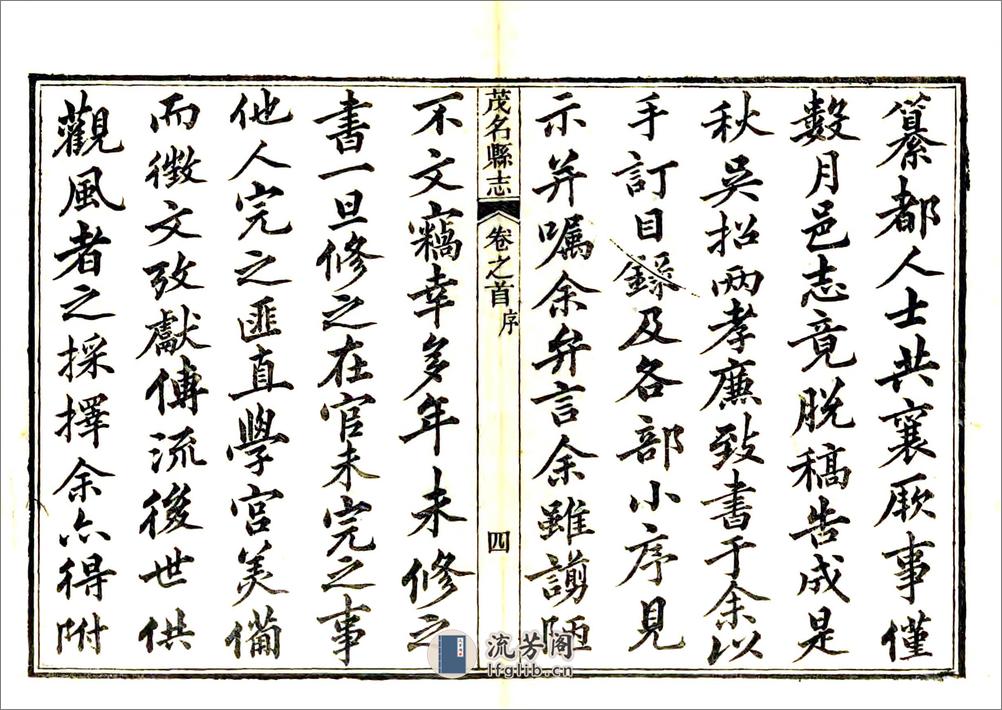 纂都人士共襄厥事僅
數月邑志竟脫稿告成是
秋吳招兩孝廉致書于余以
手訂目錄及各部小序見
示并囑余弁言余雖謭陋
茂名縣志 卷之首 序 四
不文竊幸多年未修之
書一旦修之在官未完之事
他人完之匪直學宮美備
而徵文攷獻傳流後世供
觀風者之採擇余亦得附
流芳阁
lfglib.cn